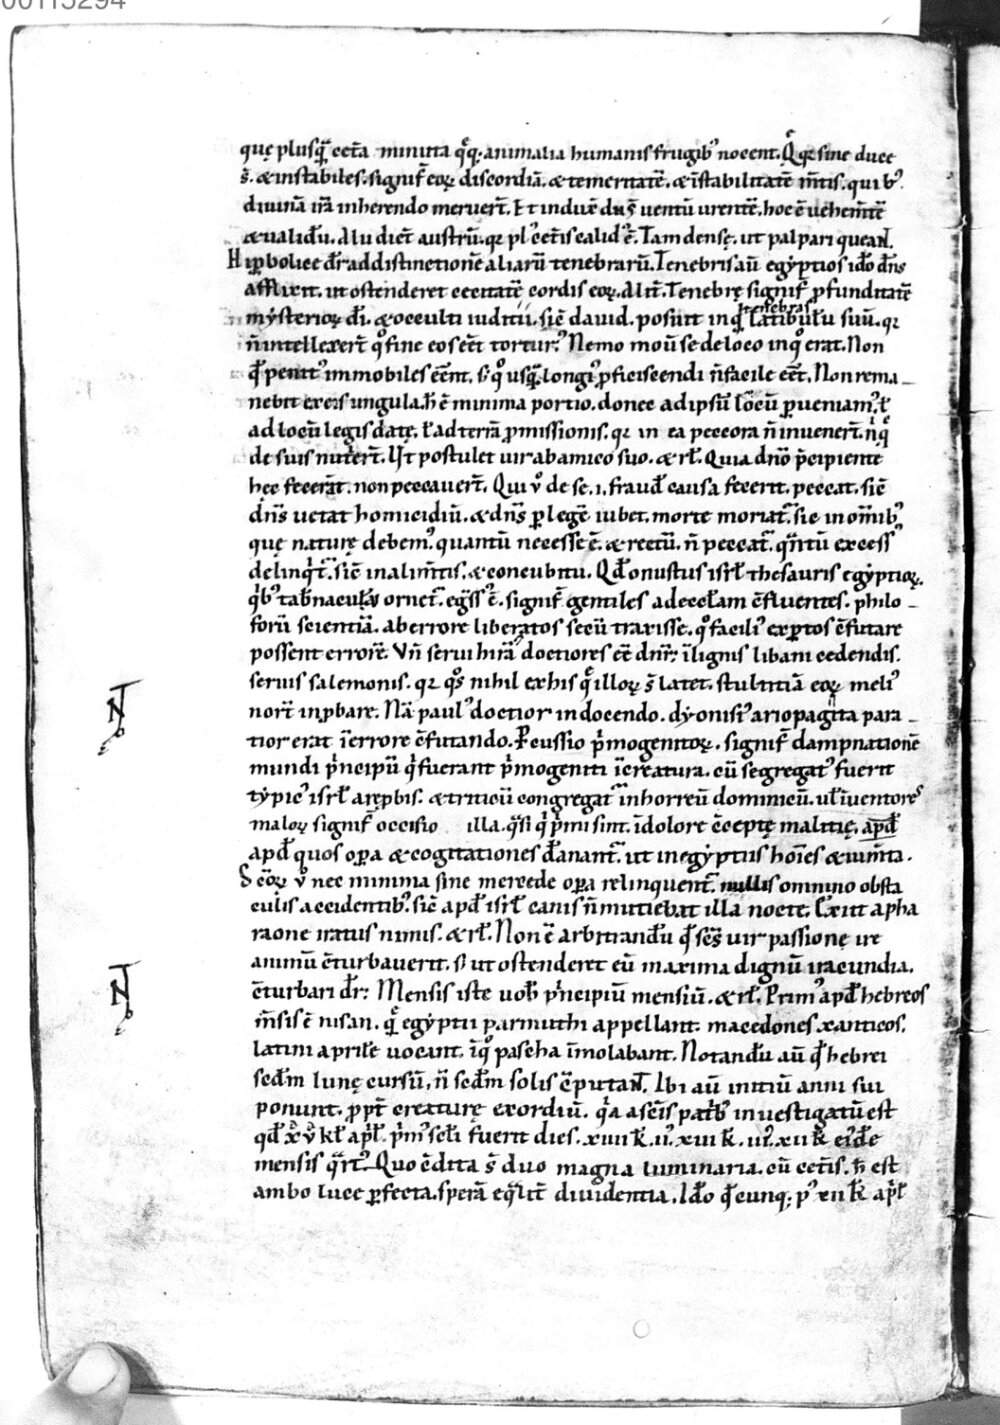 00115294
quę plusquā cet̄a minuta q̊q; animalia humanis frugib; nocent. Q̊ qꝛ sine duce
s̄. & instabiles. signif̄ eoꝝ discordiā. & temeritatē. & īstabilitatē m̄tis. quib;
diuinā irā inherendo meruer̄t. Et induxē dn̄s uentū urentē. hoc ē uehem̄tē
& ualidū. Aludiē austrū. qꝛ pl' cet̄is calid' ē. Tam densę. ut palpari queant.
Hiꝑbolice dr̄ ad distinctionē aliarū tenebrarū. Tenebris aū egẏptios ideo dn̄s
afflixit. ut ostenderet cecitatē cordis eoꝝ. Alit̄. Tenebrę signif̄ ꝓfunditatē
tenebras
mẏsterioꝝ dī. & occulti iuditii. sic̄ dauid. posuit in q̄ latibulū suū. qꝛ
n̄ intellexer̄t q̊ fine eos eēt tortur'. Nemo mouit se de loco in q̊ erat. Non
q̄ penit' immobiles eēnt. s; q̊ usq̄ longi' ꝓficiscendi n̄ facile eēt. Non rema-
nebit ex eis ungula. h̄ ē minima portio. donec ad ipsū locū ꝑueniam'. ł
ad locū legis datę. ł ad terrā ꝓmissionis. qꝛ in ea peccora n̄ inuener̄t. nq̄
de suis nutrier̄t. Ut postulet uir ab amico suo. & rł. Quia dn̄o p̄cipiente
hęc fecer̄t. non peccauer̄t. Qui v̊ de se .i. fraud̄ causa fecerit. peccat. sic̄
dn̄s uetat homicidiū. & dn̄s ꝑ legē iubet. morte moriat̄. sic in om̄ib;
quę naturę debem'. quantū necesse ē. & rectū. n̄ peccat̄. qn̄tū excess'
delinq̄t̄. sic̄ in alim̄tis. & concubitu. Qd̄ onustus isrł thesauris egẏptioꝝ.
q̊b; tab̄naculū ornet̄. egr̄ss' ē. signif̄ gentiles ad eccłam ꝯfluentes. philo-
forū scientiā. ab errore liberatos secū traxisse. q̊ facili' exꝑtos ꝯfutare
possent errorē. Vn̄ serui hirā doctiores eē dn̄r. ī lignis libani cedendis.
seruis salemonis. qꝛ q̊s nihil ex his q̄ illoꝝ s̄ latet. stultitiā eoꝝ meli'
nort̄ inꝓbare. Nā paul' doctior in docendo. dẏonisi' ariopagita para-
tior erat ī errore ꝯfutando. Pcussio p̄mogenitoꝝ. signif̄ dampnationē
mundi p̄ncipū q̄ fuerant p̄mogeniti ī creatura. cū segregat' fuerit
tẏpic' isrł a rep̄bis. & triticū congregat̄ in horreū dominicū. uł īuentores
maloꝝ signif̄ occisio illa. q̄si q̄ p̄mi sint. ī dolore ꝯceptę malitię. apd̄
apd̄ quos oꝑa & cogitationes dānant̄. ut in egẏptiis hoīes & ium̄ta.
S; eoꝝ v̊ nec minima sine mercede oꝑa relinquent̄. nullis omnino obsta
culis accidentib;. sic̄ apd̄ isrł canis n̄ mutiebat illa nocte. Exiit a pha
raone iratus nimis. & rł. Non ē arbitrandū q̄ scs̄ uir passione ire
animū ꝯturbauerit. s; ut ostenderet eū maxima dignū iracundia.
ꝯturbari dr̄. Mensis iste uob̄ p̄ncipiū mensiū. & rł. Prim' apd̄ hebreos
m̄sis ē nisan. q̄ egẏptii parmuthi appellant. macedones xanticos.
latini aprilē uocant. ī q̊ pascha īmolabant. Notandū aū q̄ hebrei
secd̄m lunę cursū. n̄ secd̄m solis ꝯputant. Ibi aū initiū anni sui
ponunt. ꝓpt̄ creaturę exordiū. q̄a a scīs patrib; inuestigatū est
qd̄ xv̊ kł apł. p̄m' sełi fuerit dies. xiiii k̄. ii'. xiii k̄. iii'. xii k̄ ei'dē
mensis q̄rt'. Quo ꝯdita s̄ duo magna luminaria. cū cet̄is. h̄ est
ambo luce ꝑfecta. sperā eq̄lit̄ diuidentia. Idō q̄cunq; p' xii k̄ apł